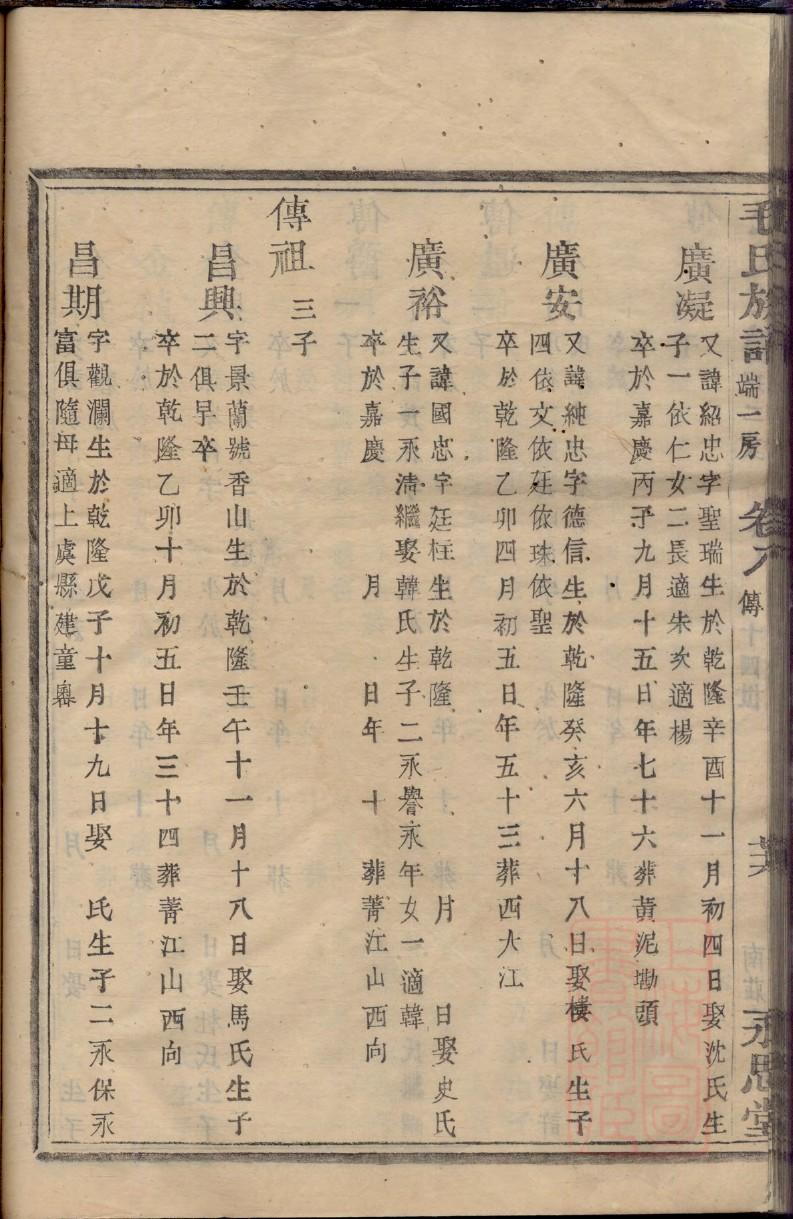 毛氏族譜 端一房 卷八 傳 十四世 南莊 永思堂
廣凝
又諱紹忠字聖瑞生於乾隆辛酉十一月初四日娶沈氏生
子一依仁女二長適朱次適楊
卒於嘉慶丙子九月十五日年七十六葬黃泥塪頭
廣安
又諱純忠字德信生於乾隆癸亥六月十八日娶樓氏生子
四依文依廷依珠依聖
卒於乾隆乙卯四月初五日年五十三葬西大江
廣裕
又諱國忠字廷柱生於乾隆 月 日娶史氏
生子一永清繼娶韓氏生子二永譽永年女一適韓
卒於嘉慶 月 日年 十 葬菁江山西向
傳祖 三子
昌興
字景蘭號香山生於乾隆壬午十一月十八日娶馬氏生子
二俱早卒
卒於乾隆乙卯十月初五日年三十四葬菁江山西向
昌期
字觀瀾生於乾隆戊子十月十九日娶 氏生子二永保永
富俱隨母適上虞縣建童嶴